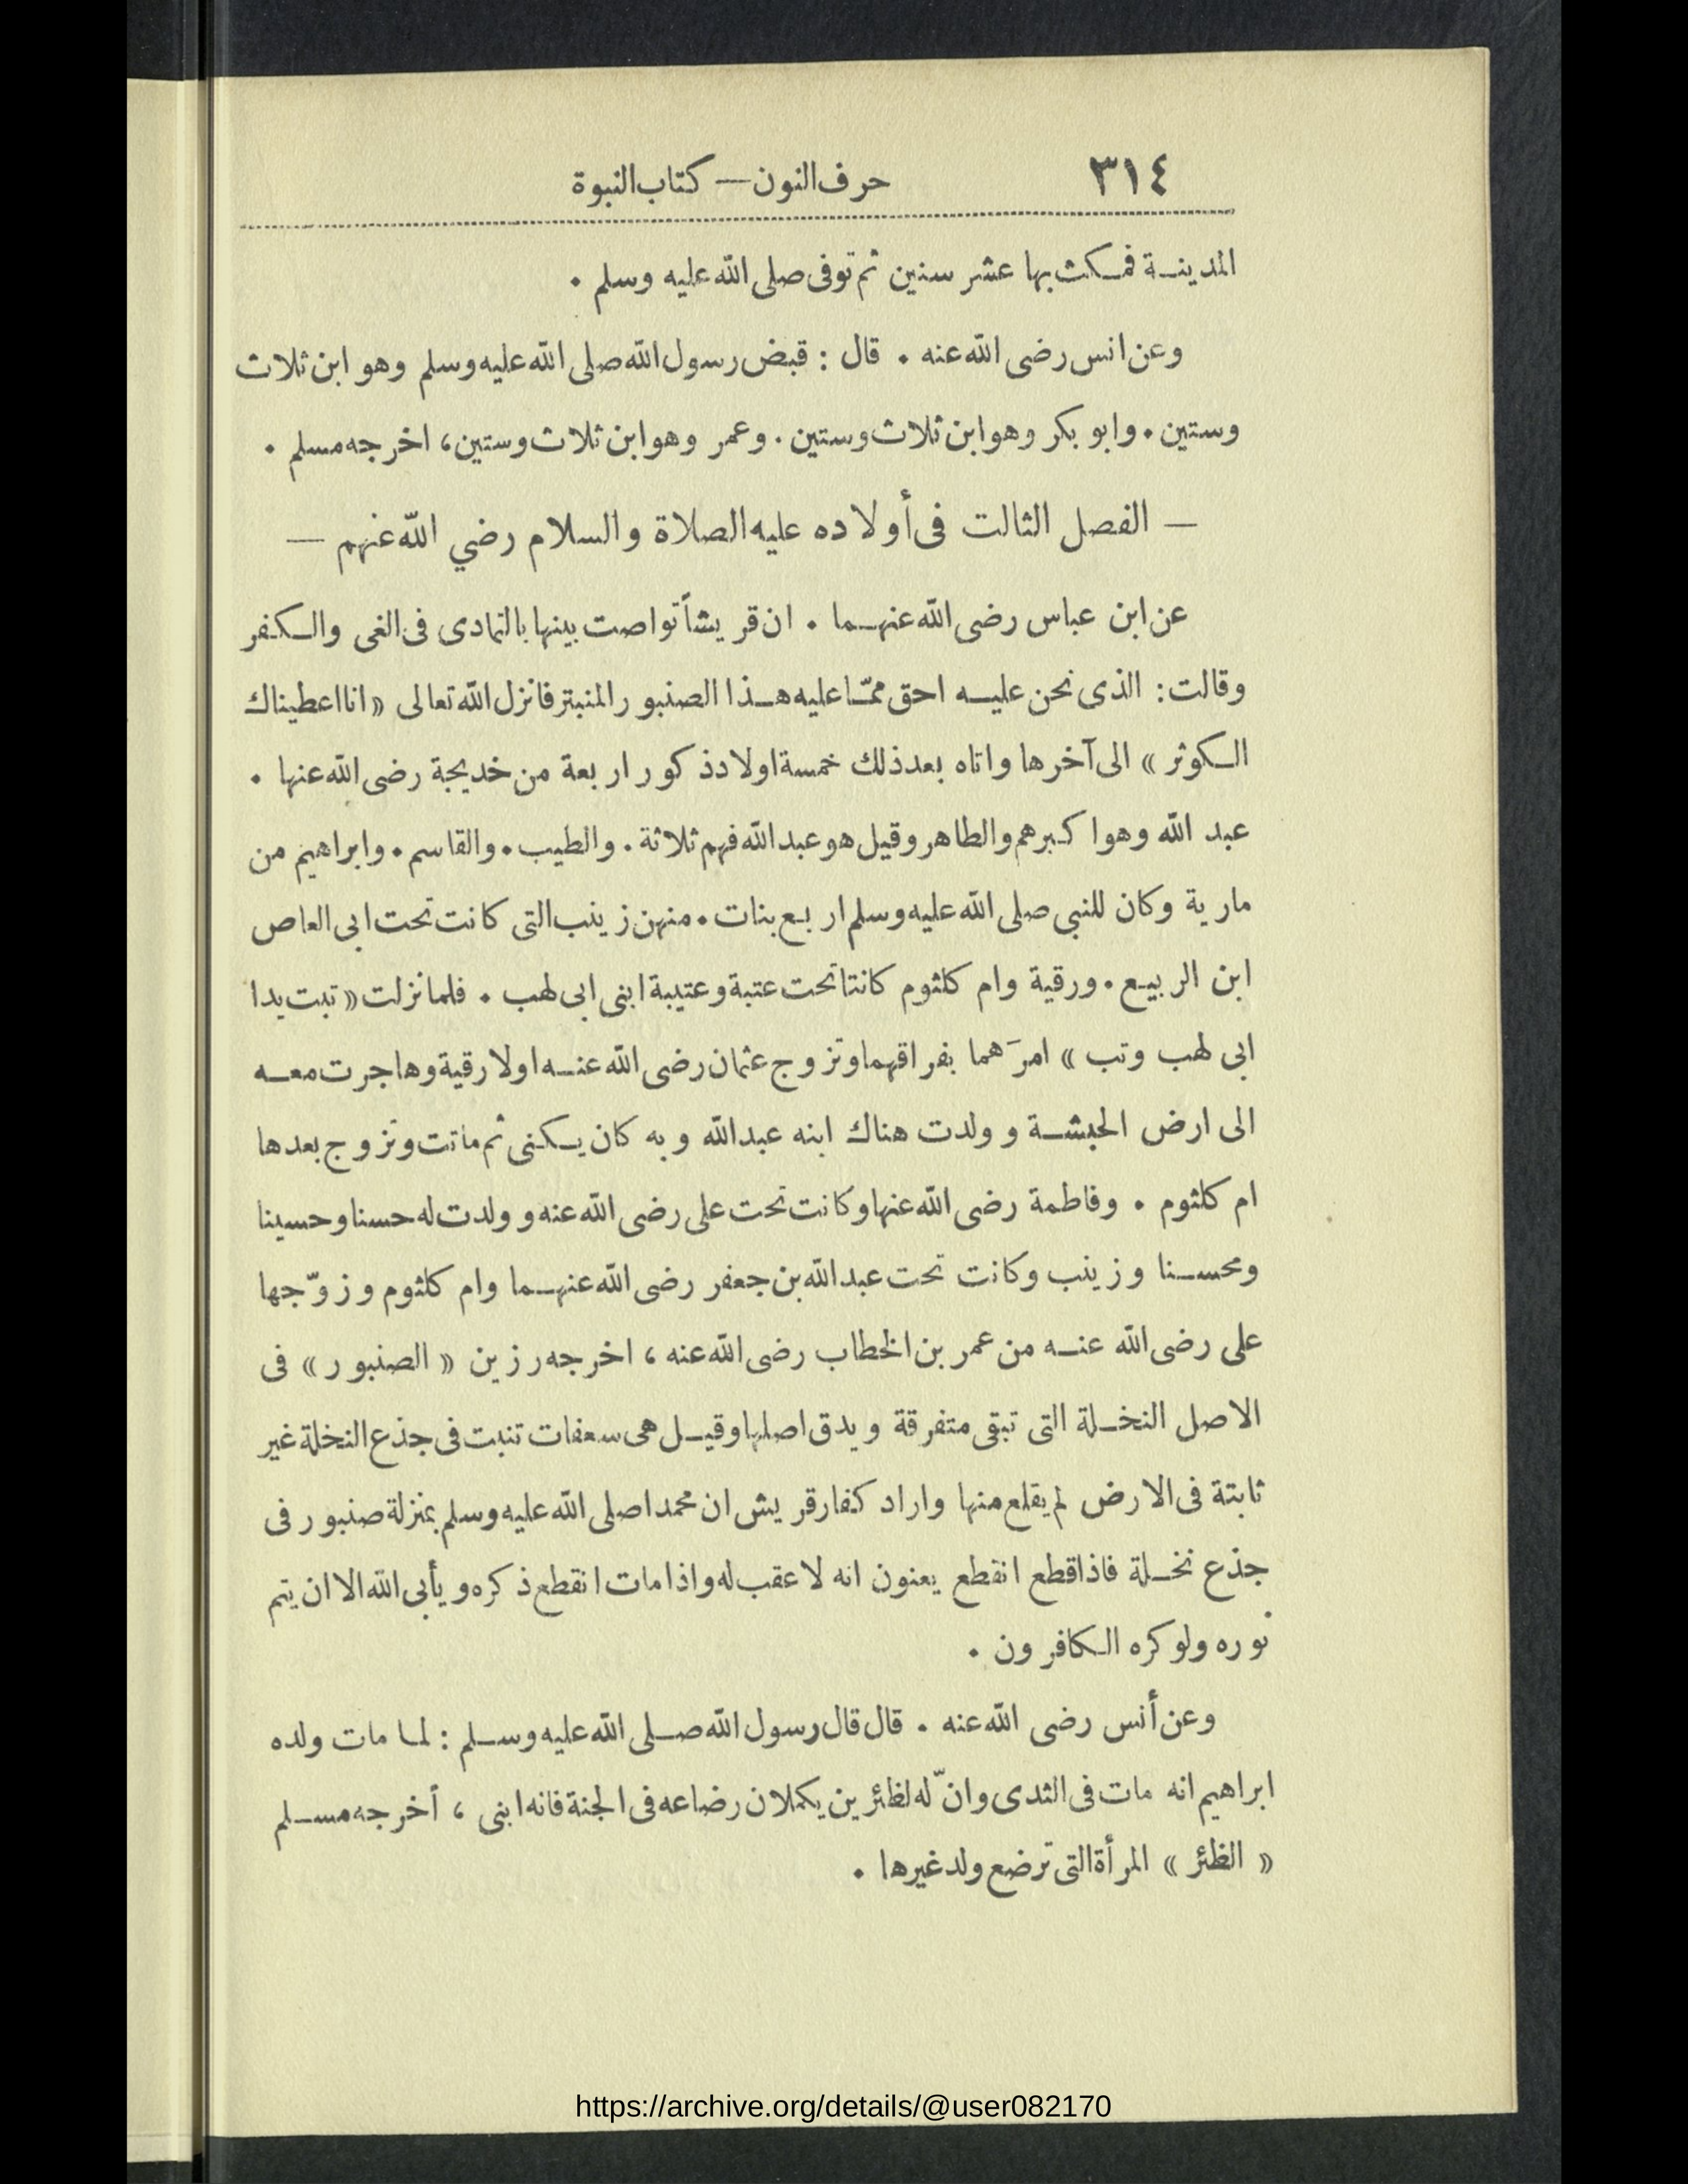 ٣١٤ حرف النون — كتاب النبوة
المدينة فمكث بها عشر سنين ثم توفى صلى الله عليه وسلم .
وعن انس رضى الله عنه . قال : قبض رسول الله صلى الله عليه وسلم وهو ابن ثلاث
وستين . وابو بكر وهو ابن ثلاث وستين . وعمر وهو ابن ثلاث وستين ، اخرجه مسلم .
— الفصل الثالت فى أولاده عليه الصلاة والسلام رضي الله عنهم —
عن ابن عباس رضى الله عنهما . ان قريشأ تواصت بينها بالتمادى فى الغى والكفر
وقالت : الذى نحن عليه احق ممّا عليه هذا الصنبور المنبتر فانزل الله تعالى « انا اعطيناك
الكوثر » الى آخرها واتاه بعد ذلك خمسة اولاد ذكور اربعة من خديجة رضى الله عنها .
عبد الله وهو اكبرهم والطاهر وقيل هو عبد الله فهم ثلاثة . والطيب . والقاسم . وابراهيم من
مارية وكان للنبى صلى الله عليه وسلم اربع بنات . منهن زينب التى كانت تحت ابى العاص
ابن الربيع . ورقية وام كلثوم كانتا تحت عتبة وعتيبة ابنى ابى لهب . فلما نزلت « تبت يدا
ابى لهب وتب » امرَهما بفراقهما وتزوج عثمان رضى الله عنه اولا رقية وهاجرت معه
الى ارض الحبشة وولدت هناك ابنه عبد الله وبه كان يكنى ثم ماتت وتزوج بعدها
ام كلثوم . وفاطمة رضى الله عنها وكانت تحت على رضى الله عنه وولدت له حسنا وحسينا
ومحسنا وزينب وكانت تحت عبد الله بن جعفر رضى الله عنهما وام كلثوم وزوّجها
على رضى الله عنه من عمر بن الخطاب رضى الله عنه ، اخرجه رزين « الصنبور » فى
الاصل النخلة التى تبقى متفرقة ويدق اصلها وقيل هى سعفات تنبت فى جذع النخلة غير
ثابتة فى الارض لم يقلع منها واراد كفار قريش ان محمدا صلى الله عليه وسلم بمنزلة صنبور فى
جذع نخلة فاذا قطع انقطع يعنون انه لا عقب له واذا مات انقطع ذكره ويأبى الله الا ان يتم
نوره ولو كره الكافرون .
وعن أنس رضى الله عنه . قال قال رسول الله صلى الله عليه وسلم : لما مات ولده
ابراهيم انه مات فى الثدى وانّ له لظئرين يكملان رضاعه فى الجنة فانه ابنى ، أخرجه مسلم
« الظئر » المرأة التى ترضع ولد غيرها .
https://archive.org/details/@user082170